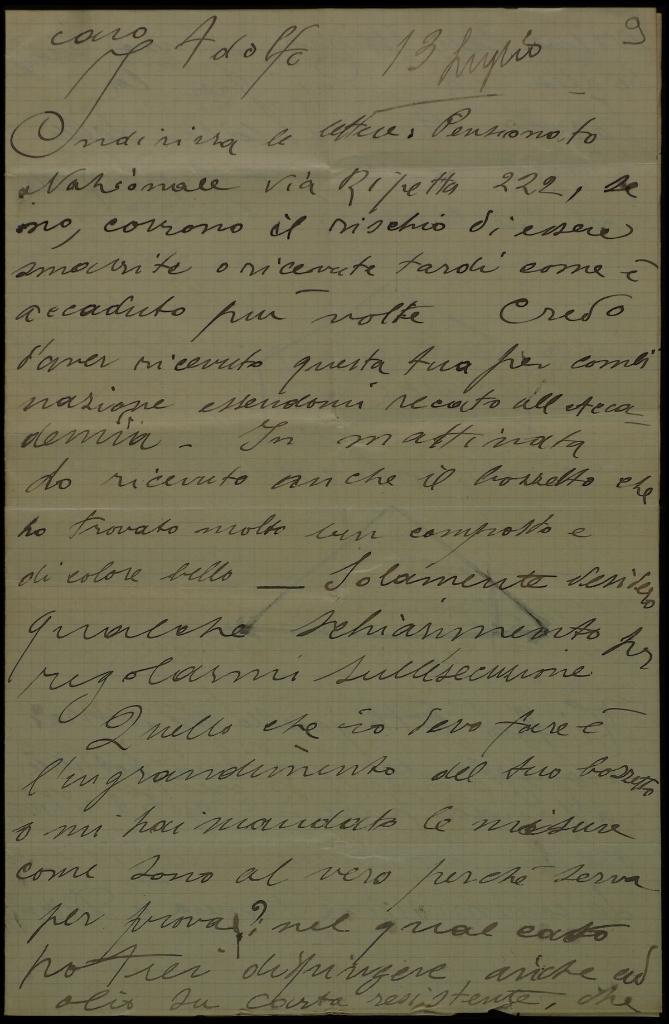 9
caro Adolfo 13 Luglio
Indirizza le lettere: Pensionato
Nazionale via Ripetta 222, se
no, corrono il rischio di essere
smarrite o ricevute tardi come è
accaduto più volte Credo
d'aver ricevuto questa tua per combi
nazione essendomi recato all'Acca-
demia - In mattinata
ho ricevuto anche il bozzetto che
ho trovato molto ben composto e
di colore bello — Solamente desidero
qualche schiarimento per
regolarmi sull'esecuzione
Quello che io devo fare è
l'ingrandimento del tuo bozzetto
o mi hai mandato le misure
come sono al vero perchè serva
per prova? nel qual caso
potrei dipingere anche ad
olio su carta resistente, che